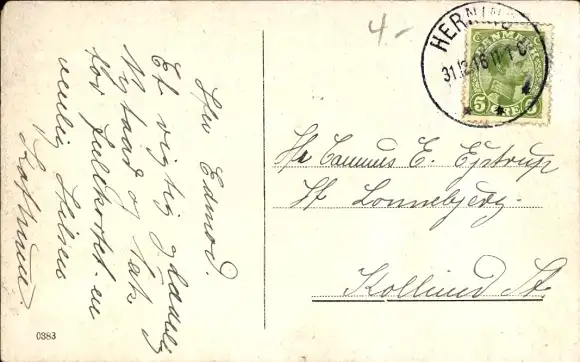 4-
HERNING
31.12.16
DANMARK
5 ØRE 5
Hr. Edmod.
Et rigtig glædelig
Nytaar og Tak
for Julekortet. en
venlig Hilsen
Hr Rasmus E. Ejstrup
St Lonnebjerg.
Kollund St.
0383